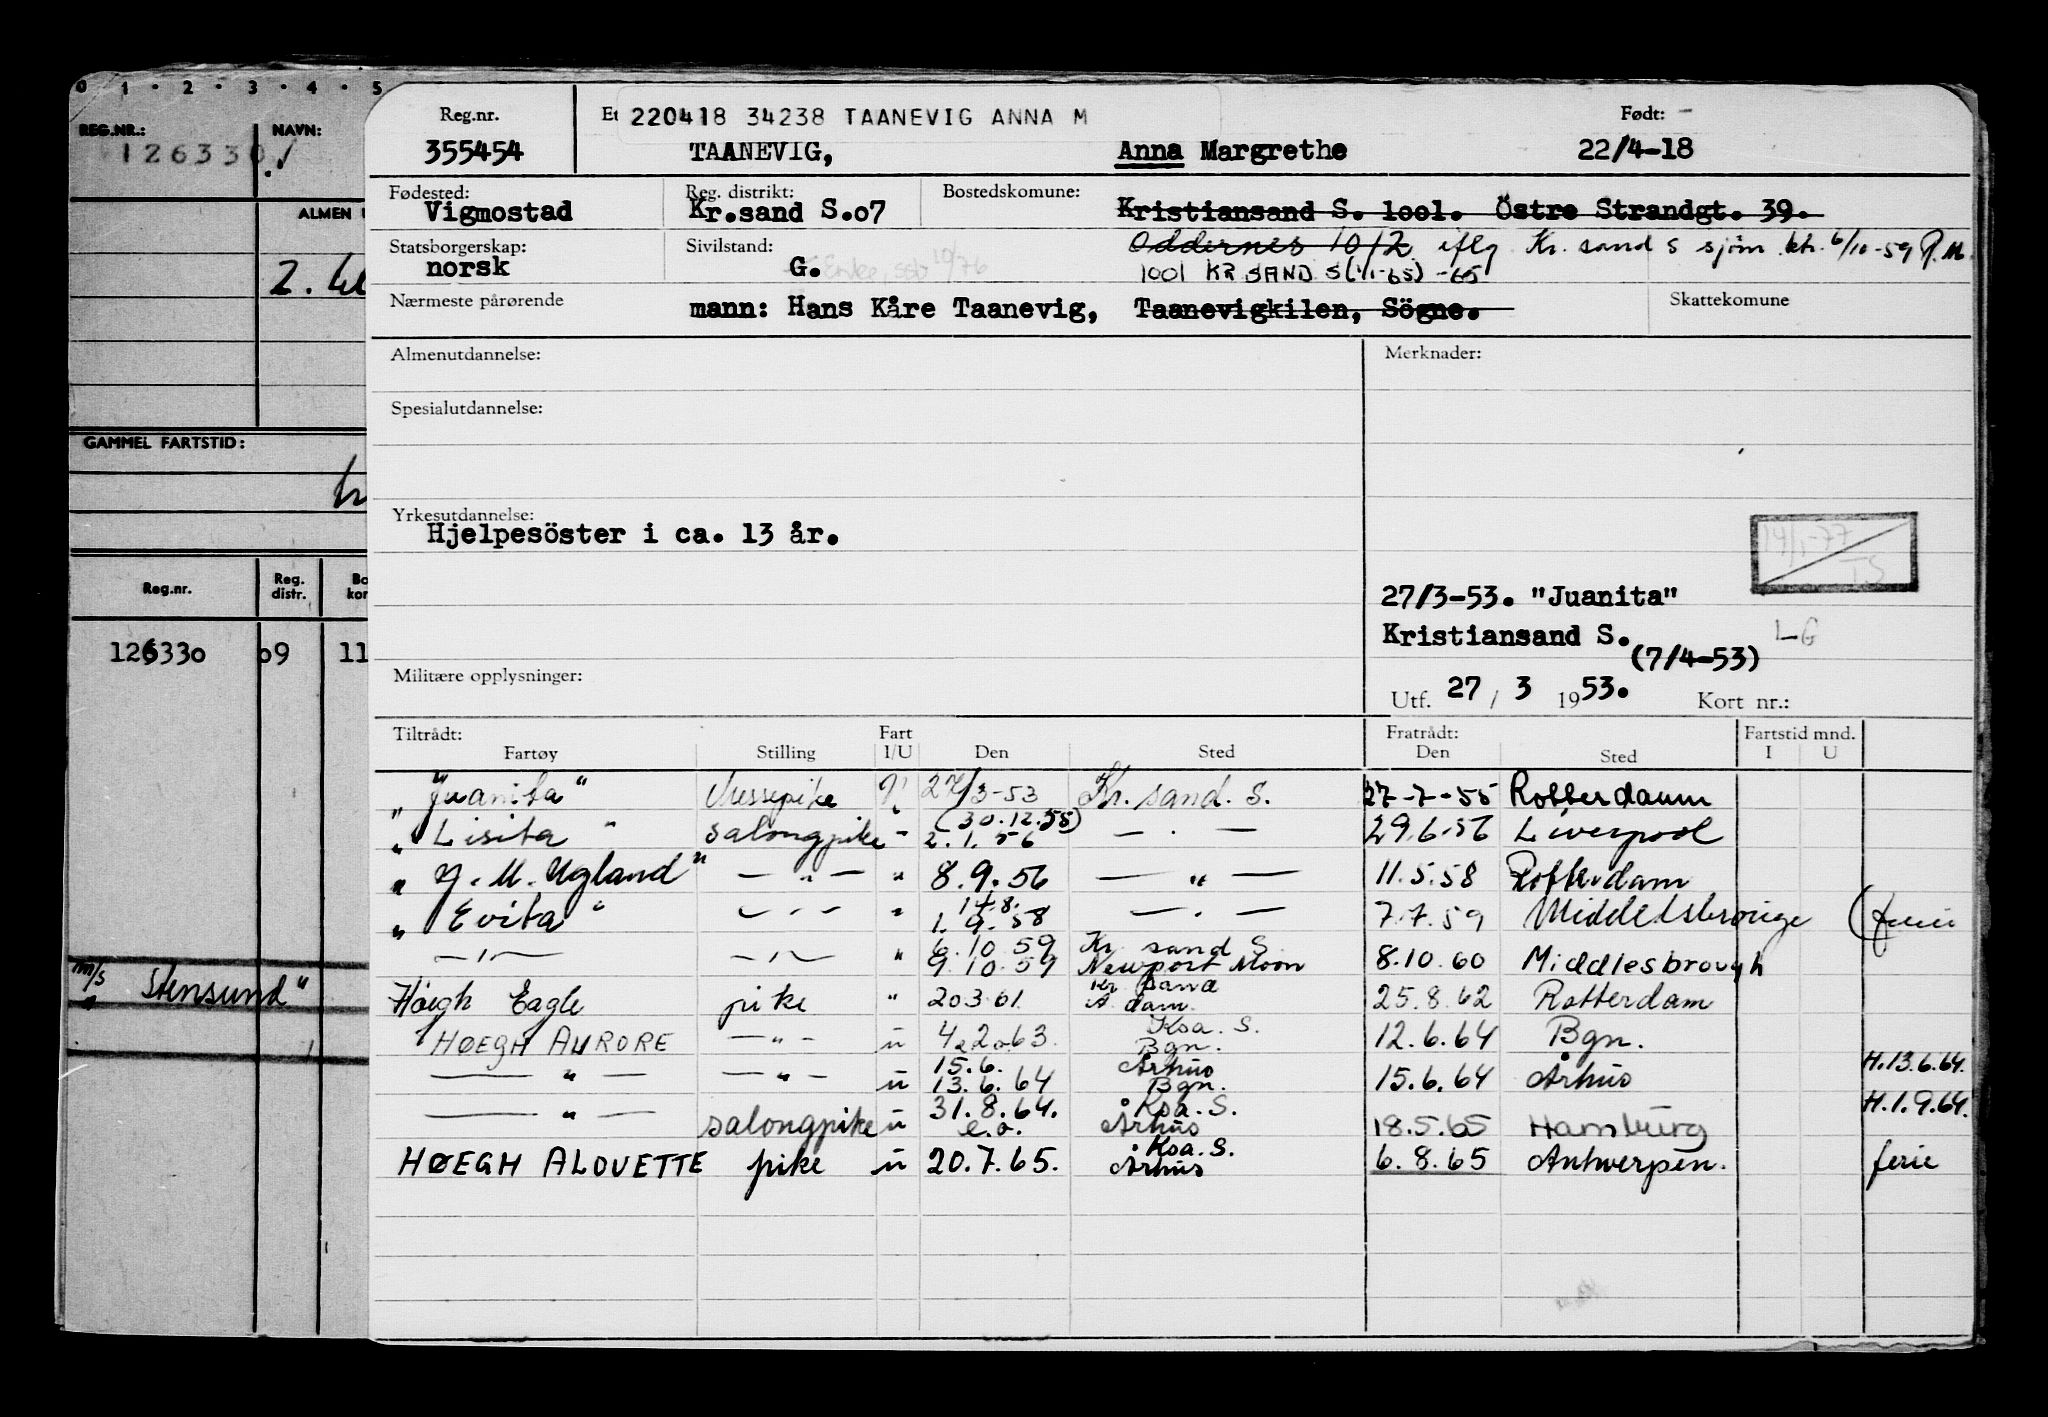 0 1 · 2 · 3 · 4 · 5
REG.NR.: NAVN:
126330
ALMEN
2.
GAMMEL FARTSTID:
Reg.nr. Reg. distr.
126330 o9 11
m/s Stensund"
Reg.nr. 220418 34238 TAANEVIG ANNA M Født:
355454 TAANEVIG, Anna Margrethe 22/4-18
Fødested: Reg. distrikt: Bostedskomune:
Vigmostad Kr.sand S.o7 Kristiansand S. 1oo1. Östre Strandgt. 39.
Statsborgerskap: Sivilstand: Oddernes 1012 iflg Kr. sand S sjøm. ktr. 6/10-59
norsk G. Enke, ssb 10/76 1001 KR SAND S (1/1-65) -65
Nærmeste pårørende mann: Hans Kåre Taanevig, Taanevigkilen, Sögne. Skattekomune
Almenutdannelse: Merknader:
Spesialutdannelse:
Yrkesutdannelse:
Hjelpesöster i ca. 13 år.
14/1-77 TS
27/3-53. "Juanita"
Kristiansand S. LG
(7/4-53)
Militære opplysninger: Utf. 27 / 3 1953. Kort nr.:
Tiltrådt: Fart Fratrådt: Fartstid mnd.
Fartøy Stilling I/U Den Sted Den Sted I U
"Juanita" Messepike U 27/3-53 Kr. sand. S. 27-7-55 Rotterdam
(30.12.55)
" Lisita " salongpike " 2.1.56 — " — 29.6.56 Liverpool
" J. M. Ugland" — " — " 8.9.56 — " — 11.5.58 Rotterdam
14.8.
" Evita " — " — " 1.9.58 — " — 7.7.59 Middelsbrouge (ferie
6.10.59 Kr. sand S.
— " — — " — " 9.10.59 Newport Moon 8.10.60 Middlesbrough
Kr sand
Høegh Eagle pike " 20.3.61. A.dam. 25.8.62 Rotterdam
Ksa. S.
HØEGH AURORE — " — u 4.2.63. Bgn. 12.6.64 Bgn.
15.6. Århus H.13.6.64.
— " — — " — u 13.6.64 Bgn. 15.6.64 Århus
31.8.64. Ksa. S. H.1.9.64.
— " — salongpike u e.o. Århus 18.5.65 Hamburg
Ksa. S.
HØEGH ALOUETTE pike u 20.7.65. Århus 6.8.65 Antwerpen. ferie